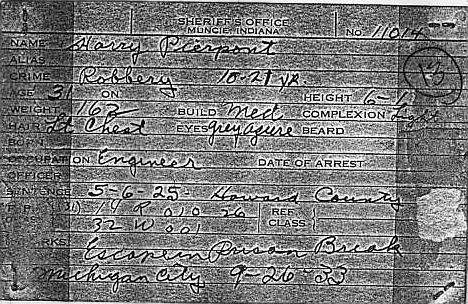 SHERIFF'S OFFICE
MUNCIE, INDIANA No. 11014
NAME Harry Pierpont
ALIAS
CRIME Robbery 10-21 YR
AGE 31 ON HEIGHT 6-1
WEIGHT 162 BUILD Med COMPLEXION Light
HAIR Lt Chest EYES grey azure BEARD
BORN
OCCUPATION Engineer DATE OF ARREST
OFFICER
SENTENCE 5-6-25- Howard County
F. P. 14 R 010 26 REF.
32 W 001 CLASS
RKS. Escape in Prison Break
Michigan City 9-26-33